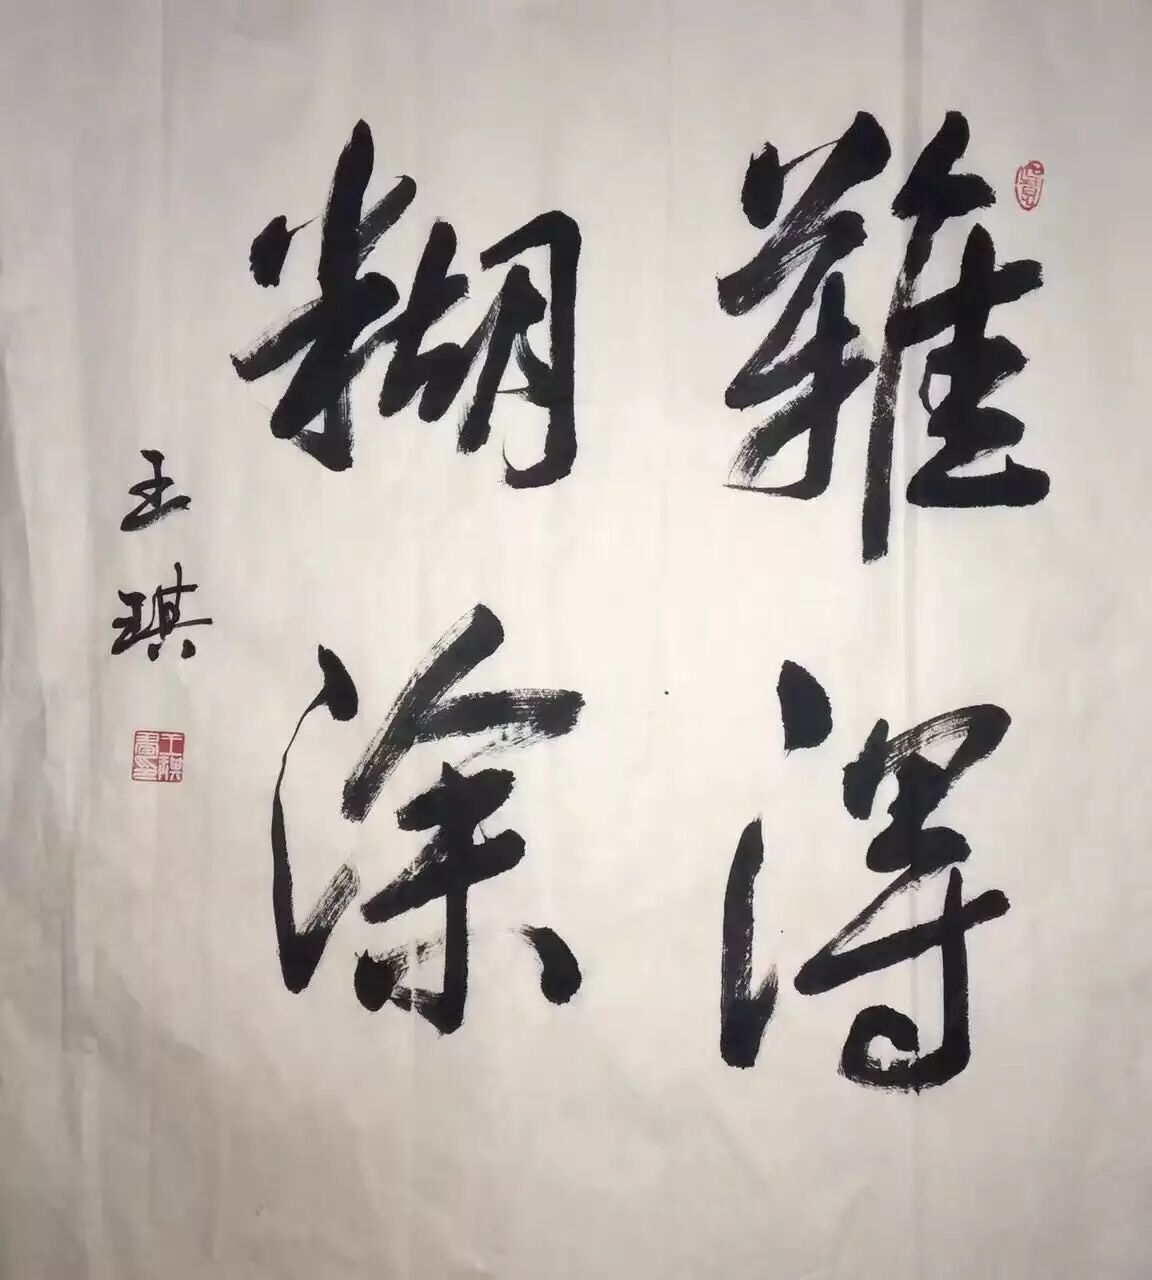 難得
糊涂
王琪